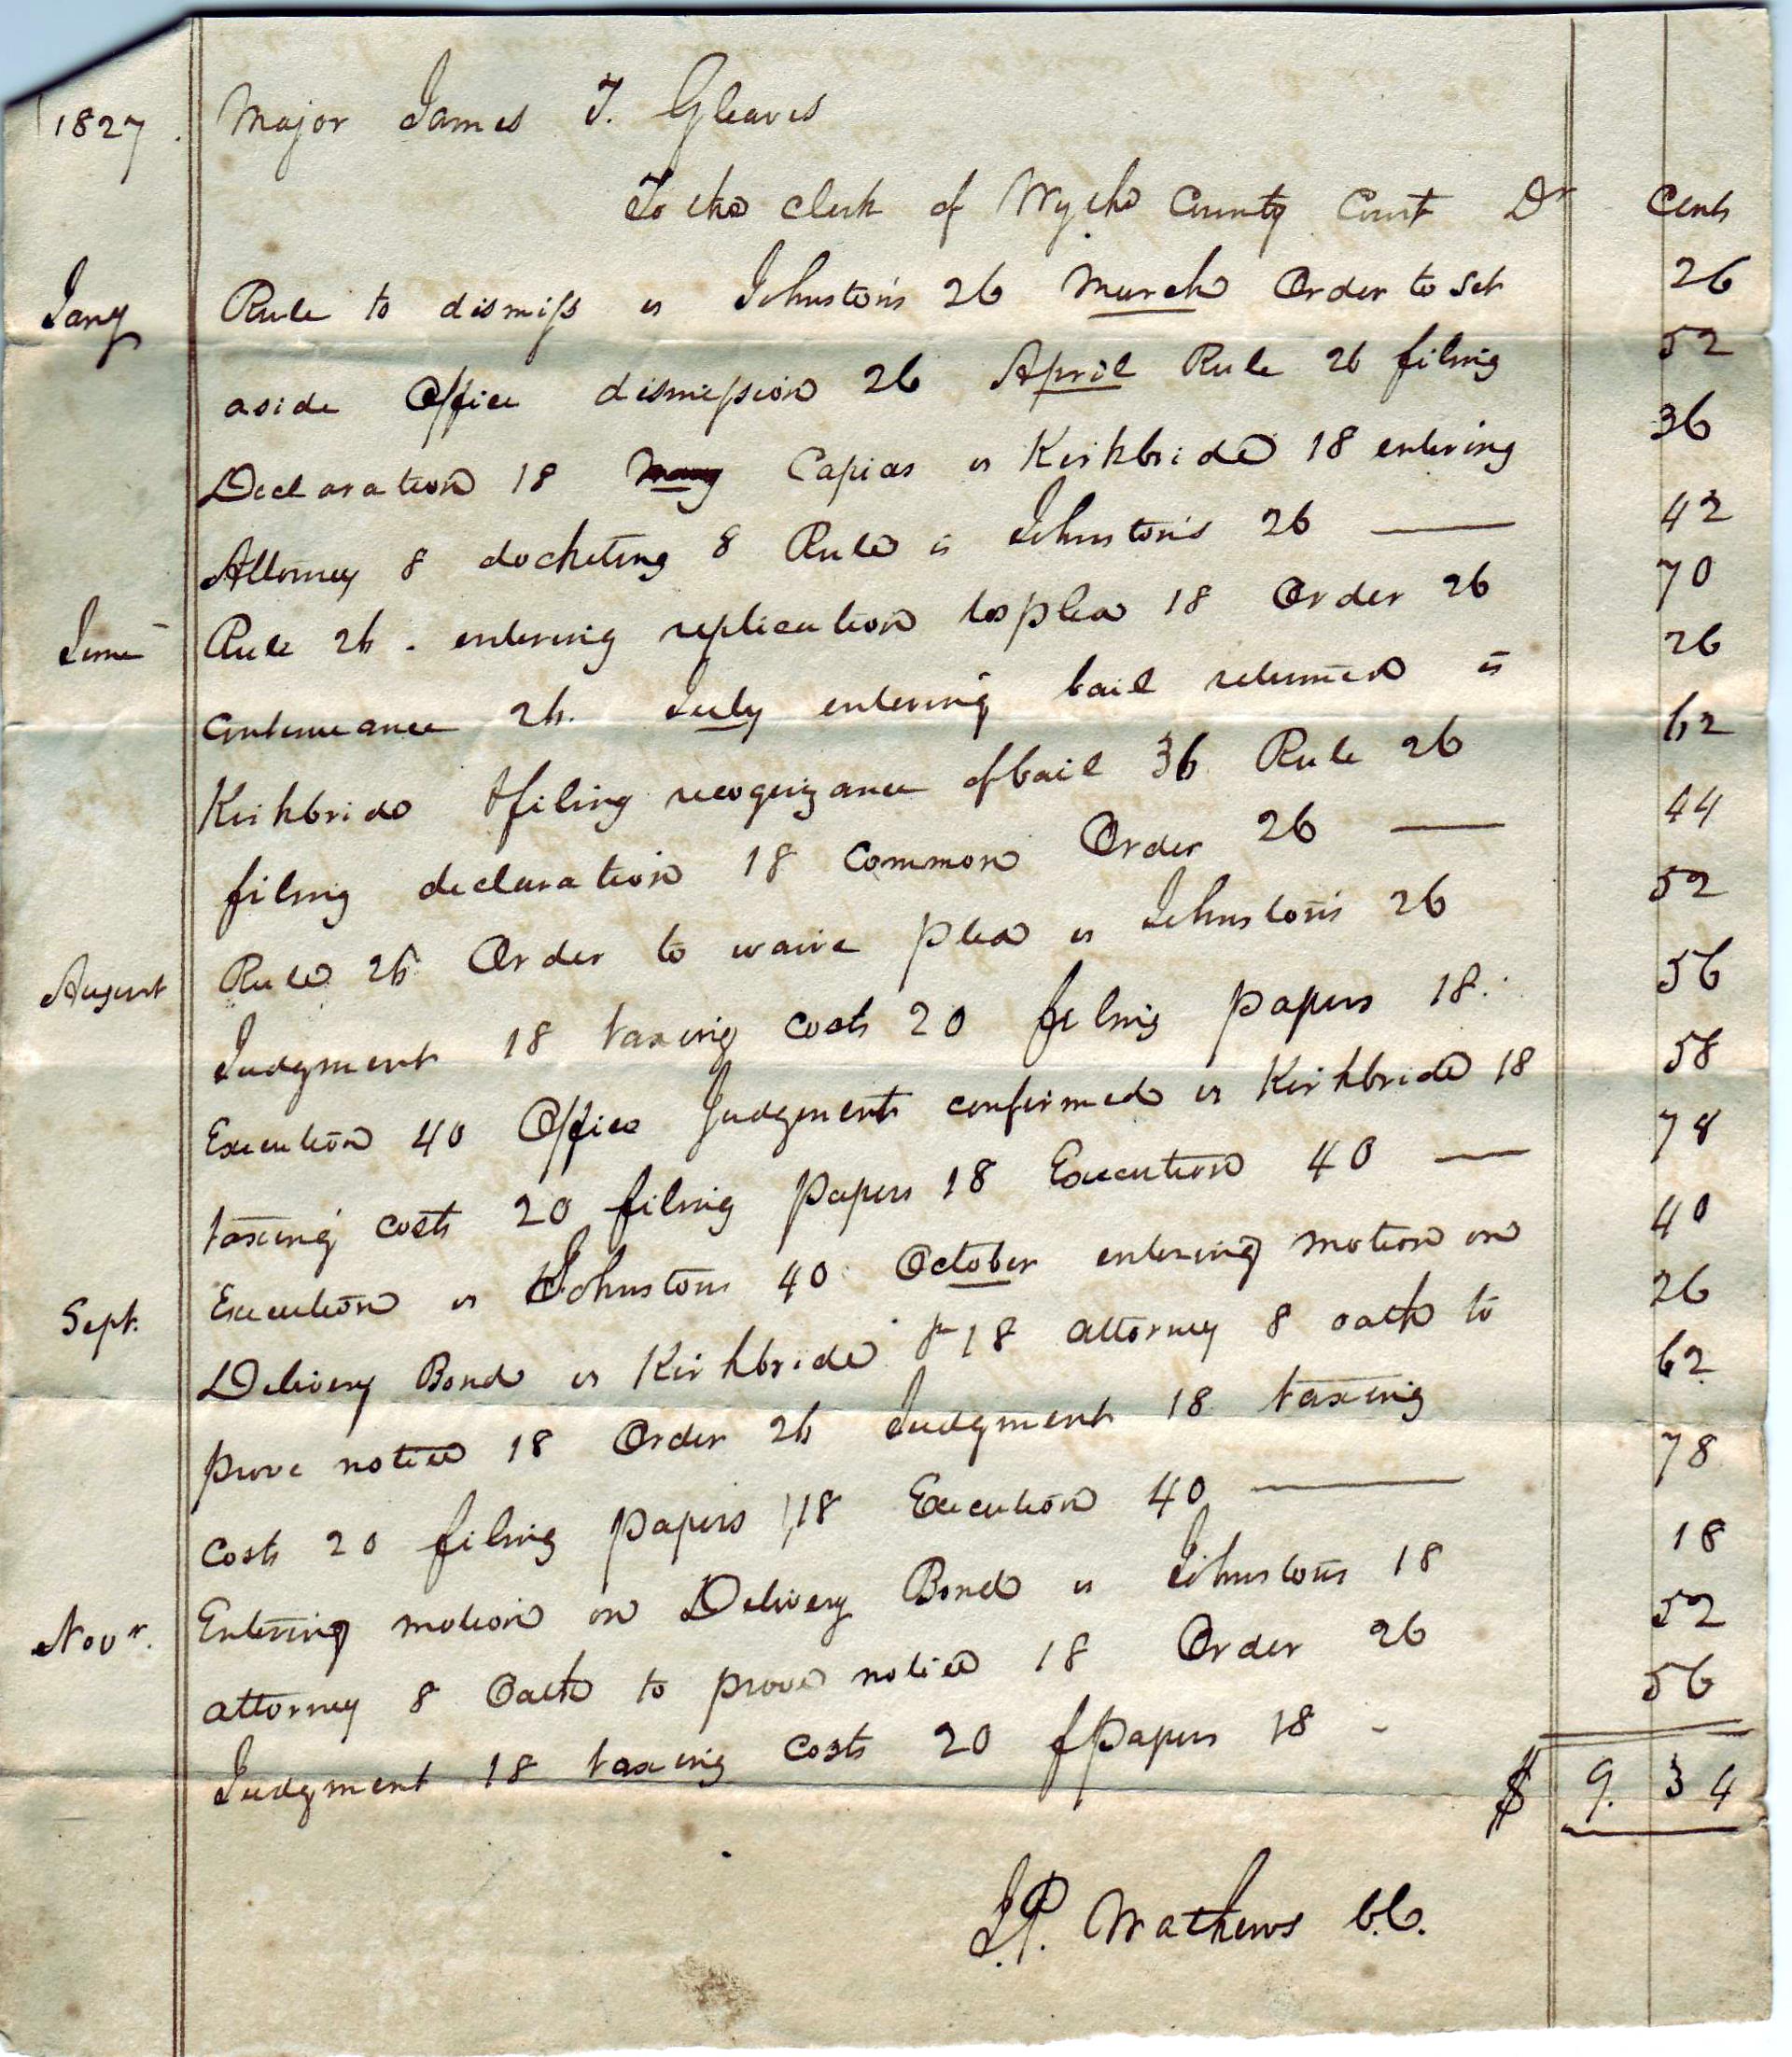 1827. Major James T. Gleaves
To the clerk of Wythe County Court Dr Cents
Jany Rule to dismiss vs Johnstons 26 March Order to set 26
aside Office dismission 26 April Rule 26 filing 52
Declaration 18 Capias vs Kirkbride 18 entering 36
Attorney 8 docketing 8 Rule vs Johnstons 26 — 42
June Rule 26. entering replication to plea 18 Order 26 70
continuance 26. July entering bail returned vs 26
Kirkbride & filing recognizance of bail 36 Rule 26 62
filing declaration 18 common Order 26 — 44
August Rule 26 Order to waive plea vs Johnstons 26 52
Judgment 18 taxing costs 20 filing papers 18. 56
Execution 40 Office Judgment confirmed vs Kirkbride 18 58
taxing costs 20 filing papers 18 Execution 40 — 78
Sept. Execution vs Johnstons 40 October entering motion on 40
Delivery Bond vs Kirkbride 18 attorney 8 oath to 26
prove notice 18 Order 26 Judgment 18 taxing 62
costs 20 filing papers 18 Execution 40 — 78
Novr. Entering motion on Delivery Bond vs Johnstons 18 18
attorney 8 Oath to prove notice 18 Order 26 52
Judgment 18 taxing costs 20 f papers 18 - 56
$ 9.34
J.P. Mathews C.C.